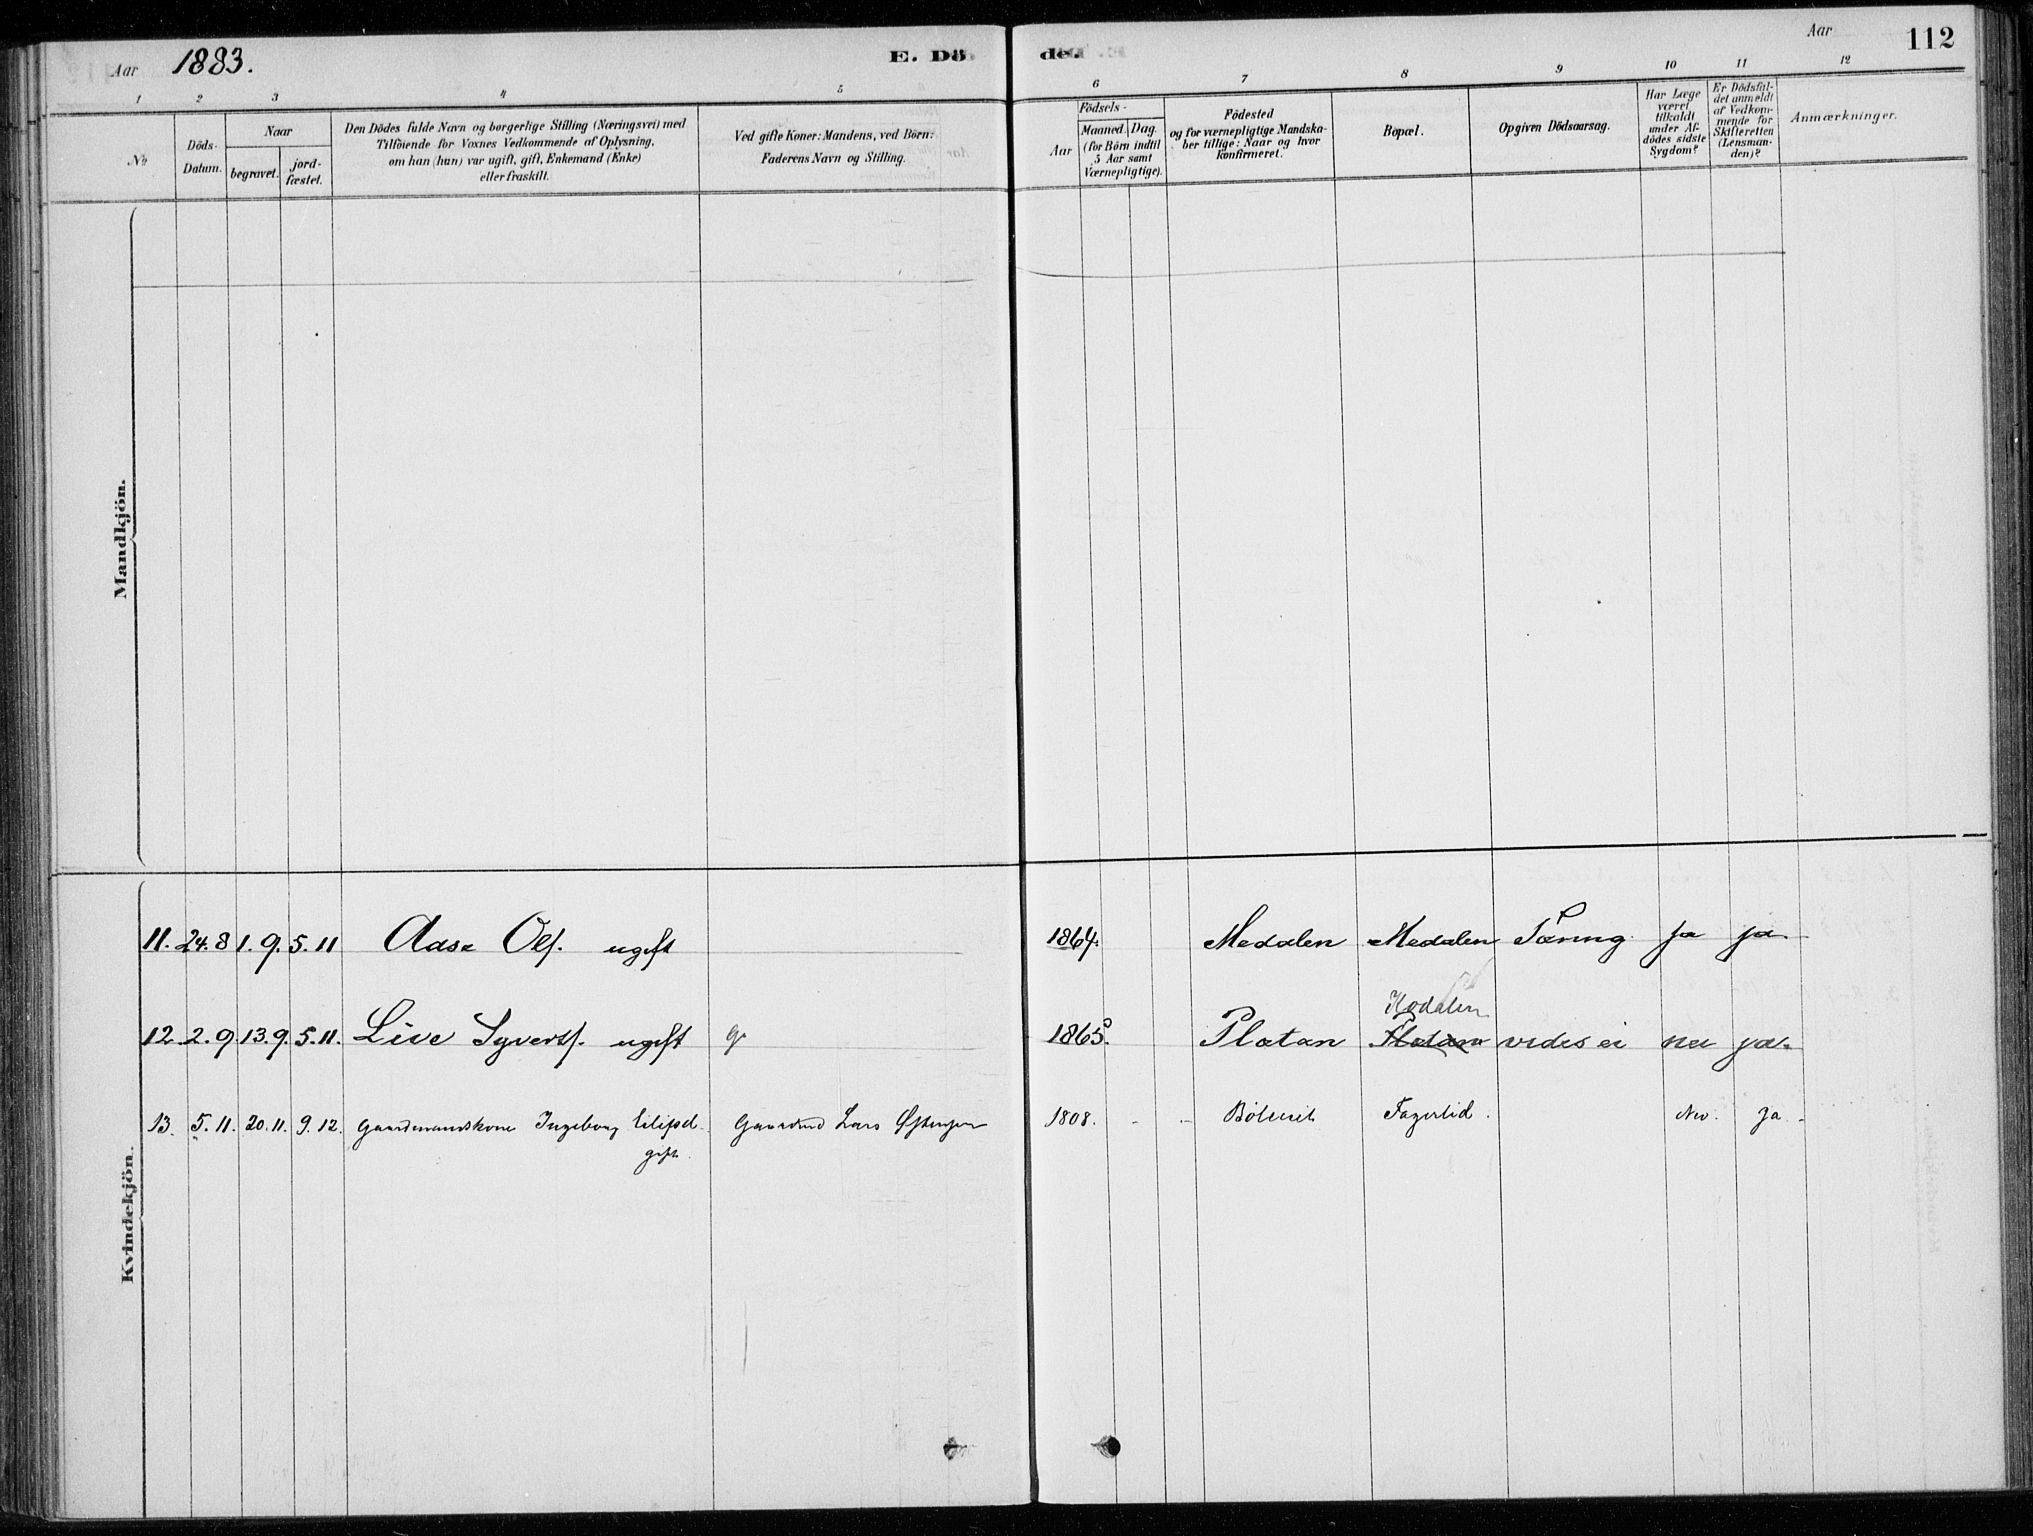 Aar 1883. E. Dö de. Aar 112
1 2 3 4 5 6 7 8 9 10 11 12
No
Döds-
Datum.
Naar
begravet.
jord-
fæstet.
Den Dödes fulde Navn og borgerlige Stilling (Næringsvei) med
Tilföiende for Voxnes Vedkommende af Oplysning,
om han (hun) var ugift, gift, Enkemand (Enke)
eller fraskilt.
Ved gifte Koner: Mandens, ved Börn:
Faderens Navn og Stilling.
Födsels-
Aar
Maaned. Dag.
(for Börn indtil
5 Aar samt
Værnepligtige).
Födested
og for værnepligtige Mandska-
ber tillige: Naar og hvor
konfirmeret.
Bopæl.
Opgiven Dödsaarsag.
Har Læge
været
tilkaldt
under Af-
dödes sidste
Sygdom?
Er Dödsfal-
det anmeldt
af Vedkom-
mende for
Skifteretten
(Lensman-
den)?
Anmærkninger.
Mandkjön.
Kvindekjön.
11. 24.8 1.9. 5.11 Aase Ols. ugift 1864. Medalen Medalen Tæring ja ja.
Hodalen
12 2.9. 13.9. 5.11. Live Syverts. ugift 1865. Platan Platan vides ei nei ja.
13. 5.11. 20.11. 9.12. Gaardmandskone Ingeborg Eilifsd. Gaardmd Lars 1808. - - Fagerlid. Nei. Ja.
gift.